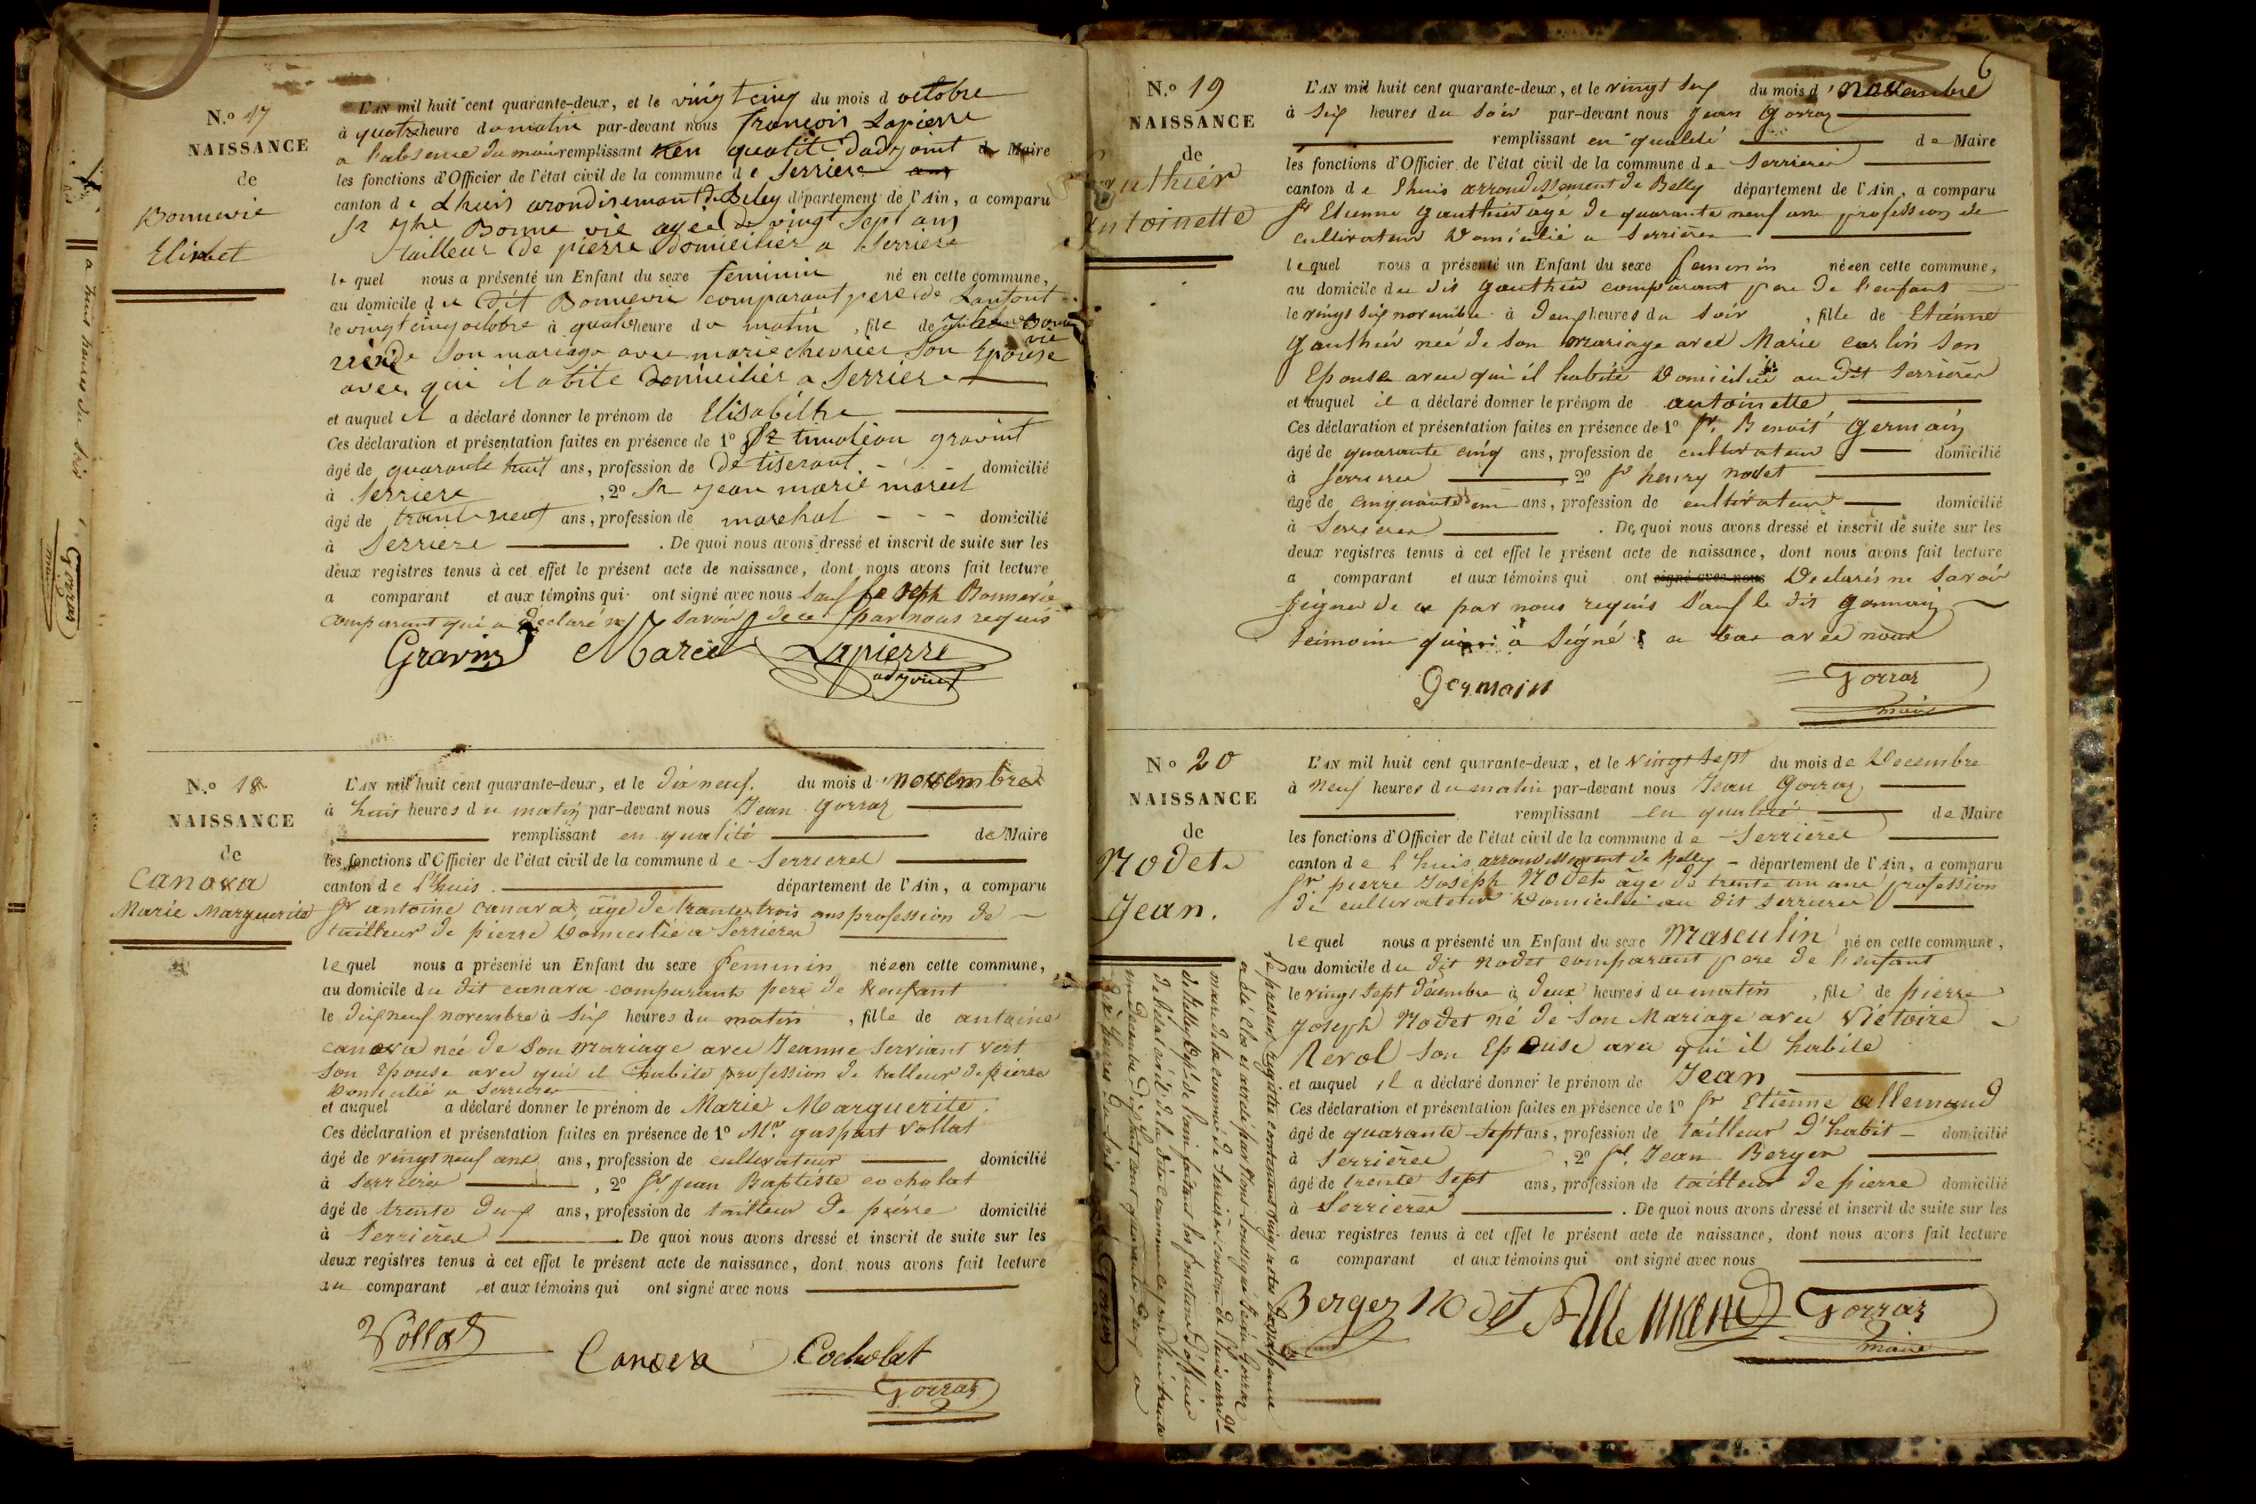 N.º 17
NAISSANCE
de
Bonnevie
Elisabet
L'AN mil huit cent quarante-deux, et le vingt cinq du mois d octobre
à quatre heure du matin par-devant nous françois Lapierre
a l'absence du maire remplissant en qualité d'adjoint de Maire
les fonctions d'Officier de l'état civil de la commune de Serriere
canton de Lhuis arondisemant de Beley département de l'Ain, a comparu
Sr Jph Bonne vie agée de vingt sept ans
tailleur de pierre domicilier a Serriere
le quel nous a présenté un Enfant du sexe feminin né en cette commune,
au domicile du dit Bonnevie comparant pere de Lanfont
le vingt cinq octobre à quatre heure du matin, file de Bonne
vie
de son mariage avec marie chevrier son Epouse
avec qui il abite domicilier a Serriere
et auquel il a déclaré donner le prénom de Elisabethe
Ces déclaration et présentation faites en présence de 1º Sr timoléon gravint
âgé de quarante huit ans, profession de de tiserant - - domicilié
à Serriere, 2º Sr jean marie marcel
âgé de trante neuf ans, profession de marchal - - - domicilié
à Serriere. De quoi nous avons dressé et inscrit de suite sur les
deux registres tenus à cet effet le présent acte de naissance, dont nous avons fait lecture
a comparant et aux témoins qui ont signé avec nous sauf Joseph Bonnevie
comparant qui a déclaré ne savoir de ce par nous requis
Gravin Marcel Lapierre
adjoint
N.º 18
NAISSANCE
de
Canova
Marie Marguerite
L'AN mil huit cent quarante-deux, et le dix neuf. du mois d'novembre
à huit heures du matin par-devant nous Jean Gorraz
remplissant en qualité de Maire
les fonctions d'Officier de l'état civil de la commune de Serrieres
canton de Lhuis. département de l'Ain, a comparu
Sr antoine canova âgé de trante trois ans profession de
tailleur de pierre Domicilié a Serrieres
lequel nous a présenté un Enfant du sexe feminin née en cette commune,
au domicile du dit canova comparant pere de l'enfant
le dix neuf novembre à six heures du matin, fille de antoine
canova née de son mariage avec Jeanne Serviant vert
son Epouse avec qui il habite profession de tailleur de pierre
Domicilié a Serrieres
et auquel a déclaré donner le prénom de Marie Marguerite.
Ces déclaration et présentation faites en présence de 1º Mr. gaspart Vollat
âgé de vingt neuf ans ans, profession de cultivateur domicilié
à Serrieres, 2º Sr Jean Baptiste cocholat
âgé de trente deux ans, profession de tailleur de pierre domicilié
à Serrières De quoi nous avons dressé et inscrit de suite sur les
deux registres tenus à cet effet le présent acte de naissance, dont nous avons fait lecture
au comparant et aux témoins qui ont signé avec nous
Vollat
Canova Cocholat
Gorraz
6
N.º 19
NAISSANCE
de
Gauthier
Antoinette
L'AN mil huit cent quarante-deux, et le vingt six du mois d'novembre
à six heures du soir par-devant nous Jean Gorraz
remplissant en qualité de Maire
les fonctions d'Officier de l'état civil de la commune de Serrieres
canton de Lhuis arrondissement de Belly département de l'Ain, a comparu
Sr Etienne Gauthier âgé de quarante neuf ans profession de
cultivateur Domicilié a Serrières
lequel nous a présenté un Enfant du sexe feminin née en cette commune,
au domicile du dit Gauthier comparant pere de l'enfant
le vingt six novembre à deux heures du soir, fille de Etiénne
Gauthier née de son mariage avec Marie carlin son
Epouse avec qui il habite Domicilié au dit Serrières
et auquel il a déclaré donner le prénom de antoinette
Ces déclaration et présentation faites en présence de 1º Sr. Benoit Germain
âgé de quarante cinq ans, profession de cultivateur domicilié
à Serrieres, 2º Sr henry nodet
âgé de cinquante deux ans, profession de cultivateur domicilié
à Serrieres. De quoi nous avons dressé et inscrit de suite sur les
deux registres tenus à cet effet le présent acte de naissance, dont nous avons fait lecture
a comparant et aux témoins qui ont signé avec nous Declarés ne savoir
signer de ce par nous requis sauf le dit Germain
temoins qui a signé a bas avec nous
Germain Gorraz
maire
Nº 20
NAISSANCE
de
Nodet
Jean.
L'AN mil huit cent quarante-deux, et le vingt sept du mois de Decembre
à neuf heures du matin par-devant nous Jean Gorraz
remplissant en qualité de Maire
les fonctions d'Officier de l'état civil de la commune de Serrières
canton de Lhuis arrondissement de Belly - département de l'Ain, a comparu
Sr pierre Joseph Nodet âgé de trente un ans profession
de cultivateur Domicilié au dit Serrieres
lequel nous a présenté un Enfant du sexe Masculin né en cette commune,
au domicile du dit Nodet comparant pere de l'enfant
le vingt sept décembre à deux heures du matin, fils de pierre
Joseph Nodet né de son Mariage avec Victoire
Revol son Epouse avec qui il habite
et auquel il a déclaré donner le prénom de Jean
Ces déclaration et présentation faites en présence de 1º Sr Etienne allemand
âgé de quarante sept ans, profession de tailleur d'habit - domicilié
à Serrières, 2º Sr. Jean Berger
âgé de trente sept ans, profession de tailleur de pierre domicilié
à Serrieres. De quoi nous avons dressé et inscrit de suite sur les
deux registres tenus à cet effet le présent acte de naissance, dont nous avons fait lecture
a comparant et aux témoins qui ont signé avec nous
Berger Nodet Allemand Gorraz
maire
Le présent registre contenant vingt actes de naissance
a été clos et areté par Nous soussigné Jean Gorraz
maire de la commune de Serrières canton de Lhuis arrdt
de Belley Dpt de l'ain faisant les fonctions d'officier
de l'état civil de la dite commune ce jourd'hui trente
un Decembre dix huit cent quarante deux a
dix heures du soir
Gorraz
a huit heures du soir
Gorraz
maire